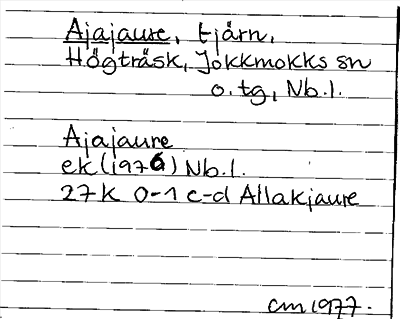 Ajajaure, tjärn,
Högträsk, Jokkmokks sn
o. tg, Nb.l.
Ajajaure
ek (1976) Nb.l.
27K 0-1 c-d Allakjaure
cm 1977.